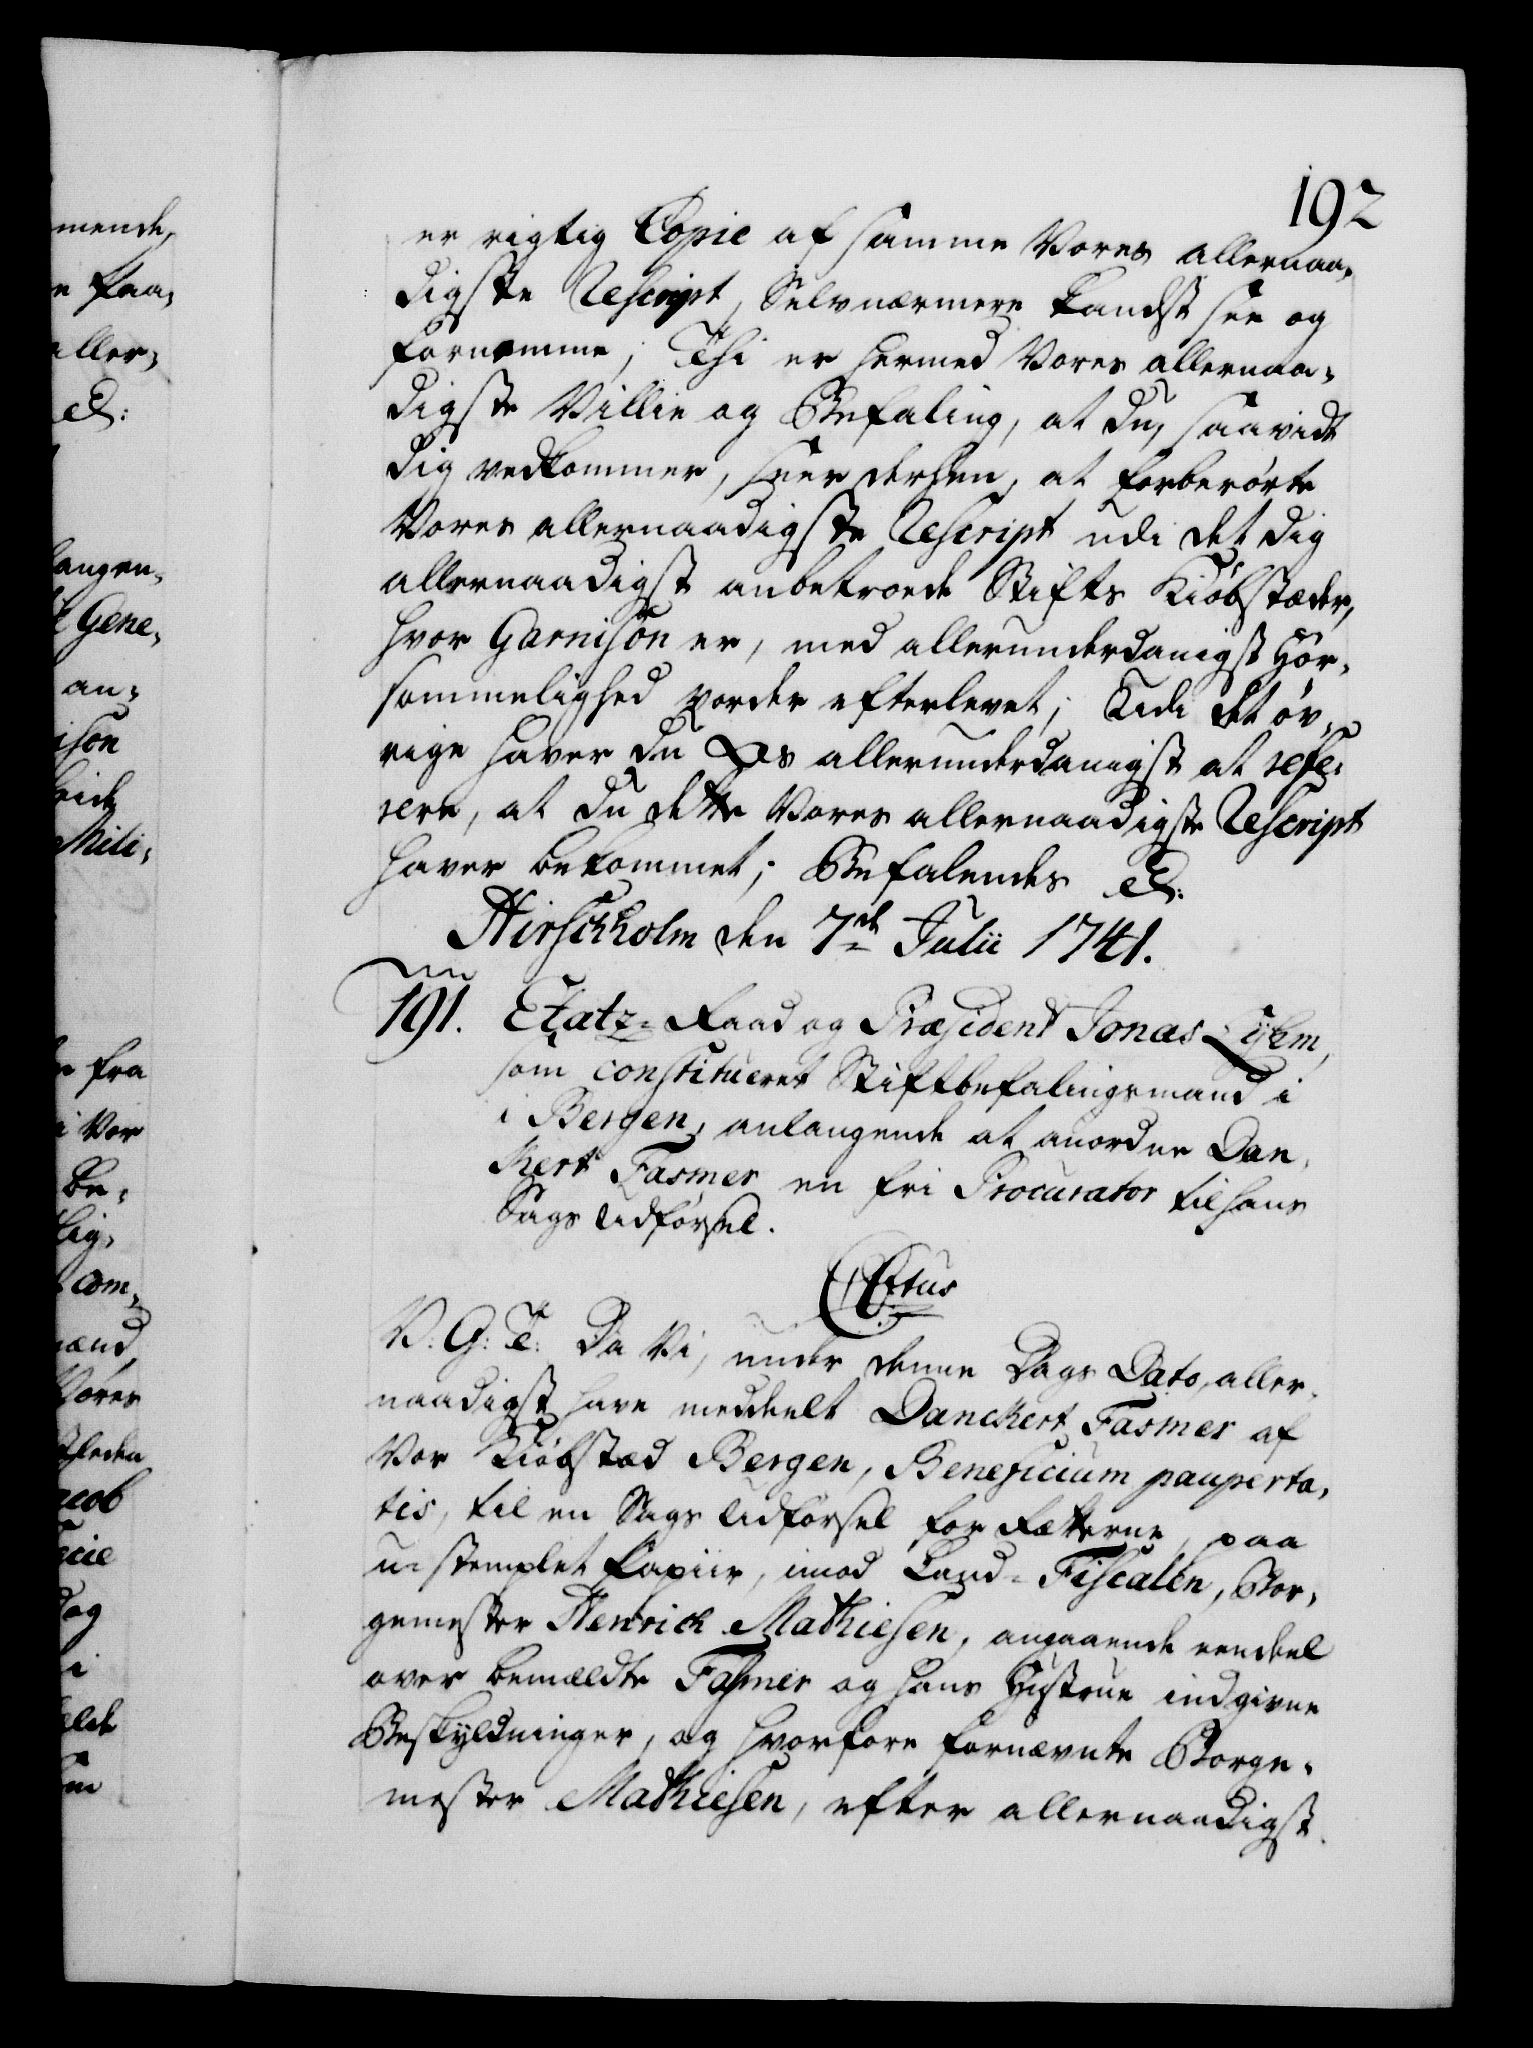 192
er rigtig Copie af samme Vores allernaa-
digste Rescript, Selv nærmere kandst see og
fornemme; Thi er hermed Vores allernaa-
digste Villie og Befaling, at du, saavidt
dig vedkommer, seer derhen, at forberørte
Vores allernaadigste Rescript udi det dig
allernaadigst anbetroede Stifts Kiøbstæder,
hvor Garnison er, med allerunderdanigst Hør-
sommelighed vorder efterlevet; Udi det øv-
rige haver du Os allerunderdanigst at refe-
rere, at du dette Vores allernaadigste Rescript
haver bekommet; Befalendes &:
Hirschholm den 7de Julii 1741.
191. Etatz-Raad og Præsident Jonas Lÿhm,
som constitueret Stiftbefalingsmand i
i Bergen, anlangende at anordne Dan-
kert Fasmer en fri Procurator til hans
Sags Udførsel.
C6tus
V: G: T: Da Vi, under denne Dags Dato, aller-
naadigst have meddeelt Danckert Fasmer af
Vor Kiøbstæd Bergen, Beneficium pauperta-
tis, til en Sags Udførsel for Rætterne, paa
u-stemplet Papiir, imod Land-Fiscalen, Bor-
gemester Henrich Mathiesen, angaaende eendeel
over bemældte Fasmer og hans Hustrue indgivne
Beskÿldninger, og hvorfore fornævnte Borge-
mester Mathiesen, efter allernaadigst
mende,
e faa-
aller-
&:
langen-
Gene-
an-
ison
Mili-
fra
i Vor
Be-
lig-
com-
mænd
Vores
acob
ecie
dog
i